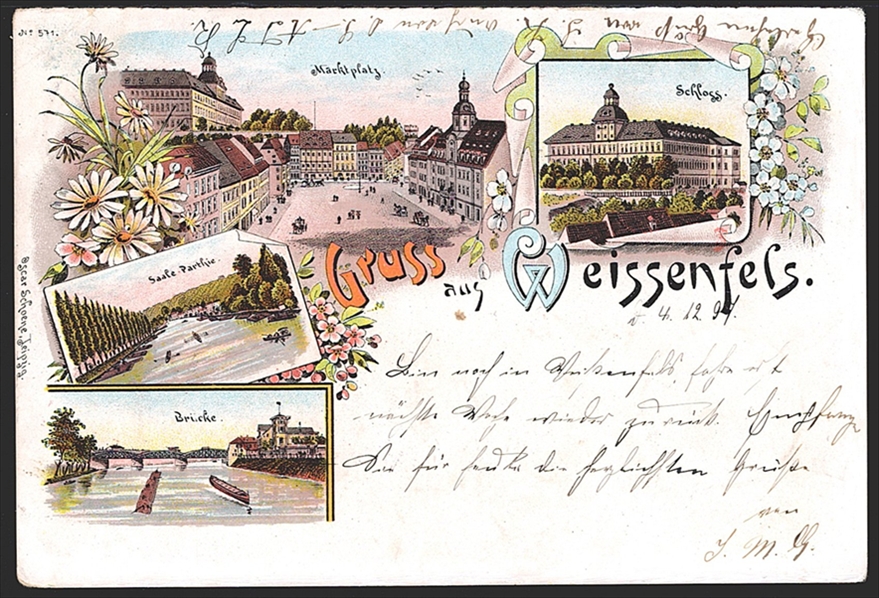 No 571.
Marktplatz.
Schloss.
Saale-Parthie.
Gruss aus Weissenfels.
Brücke.
Oscar Schoene, Leipzig.
d. 4. 12. 97.
Bin noch in Weißenfels, fahre erst
nächste Woche wieder zurück. Empfangen
Sie für heute die herzlichsten Grüße
von
J. M. G.